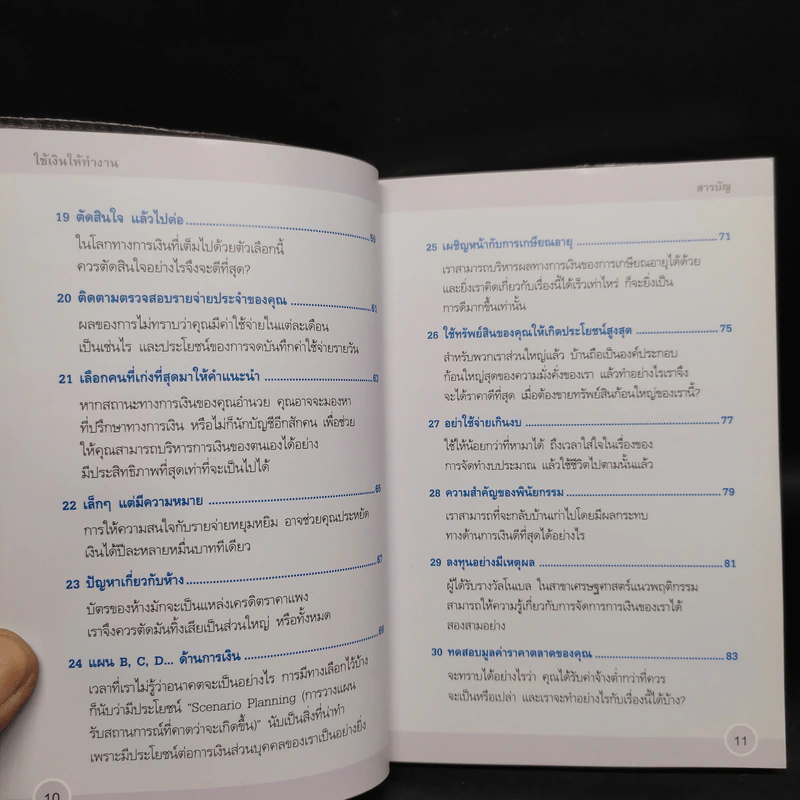 ใช้เงินให้ทำงาน
19 ตัดสินใจ แล้วไปต่อ ........ 59
ในโลกทางการเงินที่เต็มไปด้วยตัวเลือกนี้
ควรตัดสินใจอย่างไรจึงจะดีที่สุด?
20 ติดตามตรวจสอบรายจ่ายประจำของคุณ ........ 61
ผลของการไม่ทราบว่าคุณมีค่าใช้จ่ายในแต่ละเดือน
เป็นเช่นไร และประโยชน์ของการจดบันทึกค่าใช้จ่ายรายวัน
21 เลือกคนที่เก่งที่สุดมาให้คำแนะนำ ........ 63
หากสถานะทางการเงินของคุณอำนวย คุณอาจจะมองหา
ที่ปรึกษาทางการเงิน หรือไม่ก็นักบัญชีอีกสักคน เพื่อช่วย
ให้คุณสามารถบริหารการเงินของตนเองได้อย่าง
มีประสิทธิภาพที่สุดเท่าที่จะเป็นไปได้
22 เล็กๆ แต่มีความหมาย ........ 65
การให้ความสนใจกับรายจ่ายหยุมหยิม อาจช่วยคุณประหยัด
เงินได้ปีละหลายหมื่นบาททีเดียว
23 ปัญหาเกี่ยวกับห้าง ........ 67
บัตรของห้างมักจะเป็นแหล่งเครดิตราคาแพง
เราจึงควรตัดมันทิ้งเสียเป็นส่วนใหญ่ หรือทั้งหมด
24 แผน B, C, D... ด้านการเงิน ........ 69
เวลาที่เราไม่รู้ว่าอนาคตจะเป็นอย่างไร การมีทางเลือกไว้บ้าง
ก็นับว่ามีประโยชน์ "Scenario Planning (การวางแผน
รับสถานการณ์ที่คาดว่าจะเกิดขึ้น)" นับเป็นสิ่งที่น่าทำ
เพราะมีประโยชน์ต่อการเงินส่วนบุคคลของเราเป็นอย่างยิ่ง
10
สารบัญ
25 เผชิญหน้ากับการเกษียณอายุ ........ 71
เราสามารถบริหารผลทางการเงินของการเกษียณอายุได้ด้วย
และยิ่งเราคิดเกี่ยวกับเรื่องนี้ได้เร็วเท่าไหร่ ก็จะยิ่งเป็น
การดีมากขึ้นเท่านั้น
26 ใช้ทรัพย์สินของคุณให้เกิดประโยชน์สูงสุด ........ 75
สำหรับพวกเราส่วนใหญ่แล้ว บ้านถือเป็นองค์ประกอบ
ก้อนใหญ่สุดของความมั่งคั่งของเรา แล้วทำอย่างไรเราจึง
จะได้ราคาดีที่สุด เมื่อต้องขายทรัพย์สินก้อนใหญ่ของเรานี้?
27 อย่าใช้จ่ายเกินงบ ........ 77
ใช้ให้น้อยกว่าที่หามาได้ ถึงเวลาใส่ใจในเรื่องของ
การจัดทำงบประมาณ แล้วใช้ชีวิตไปตามนั้นแล้ว
28 ความสำคัญของพินัยกรรม ........ 79
เราสามารถที่จะกลับบ้านเก่าไปโดยมีผลกระทบ
ทางด้านการเงินดีที่สุดได้อย่างไร
29 ลงทุนอย่างมีเหตุผล ........ 81
ผู้ได้รับรางวัลโนเบล ในสาขาเศรษฐศาสตร์แนวพฤติกรรม
สามารถให้ความรู้เกี่ยวกับการจัดการการเงินของเราได้
สองสามอย่าง
30 ทดสอบมูลค่าราคาตลาดของคุณ ........ 83
จะทราบได้อย่างไรว่า คุณได้รับค่าจ้างต่ำกว่าที่ควร
จะเป็นหรือเปล่า และเราจะทำอย่างไรกับเรื่องนี้ได้บ้าง?
11